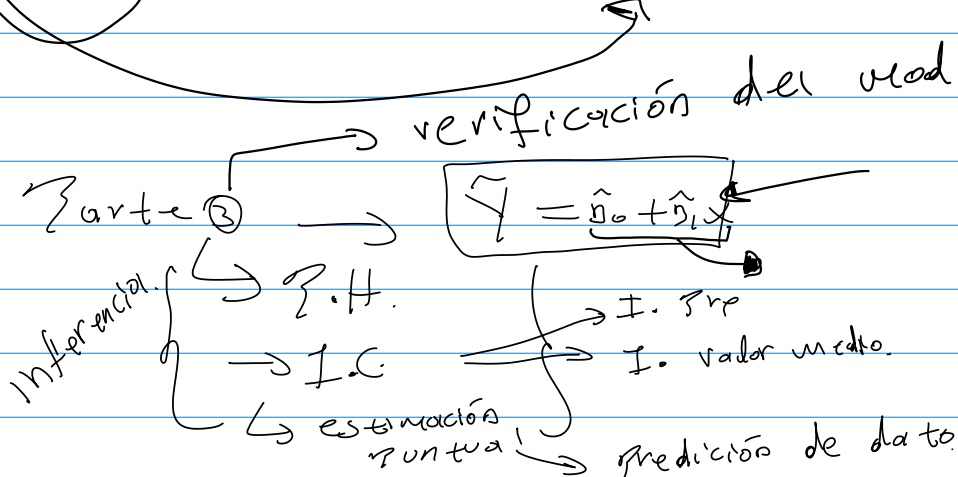 verificación del mod
Parte ③
Ŷ = β̂₀ + β̂₁x
Inferencia.
P.H.
I.C.
I. Pre
I. valor medio.
estimación
puntual
Predición de dato.